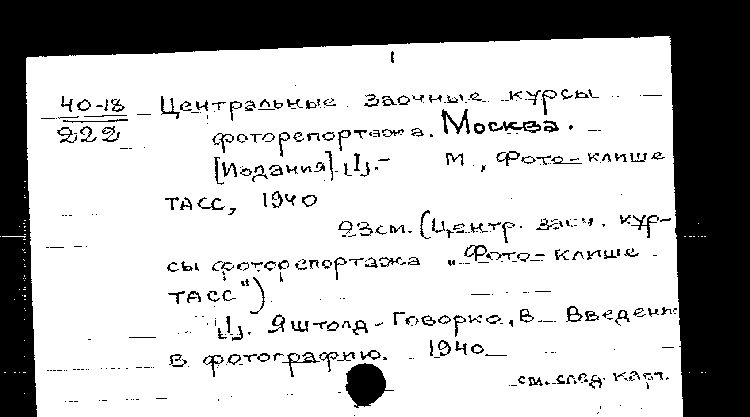 1
40-18 Центральные заочные курсы
222 фоторепортажа. Москва.
[Издания]. [1]. - М., Фото-клише
ТАСС, 1940
23см. (Центр. заоч. кур-
сы фоторепортажа "Фото-клише
ТАСС")
[1]. Яштолд-Говорко, В. Введени
в фотографию. 1940
см. след. карт.